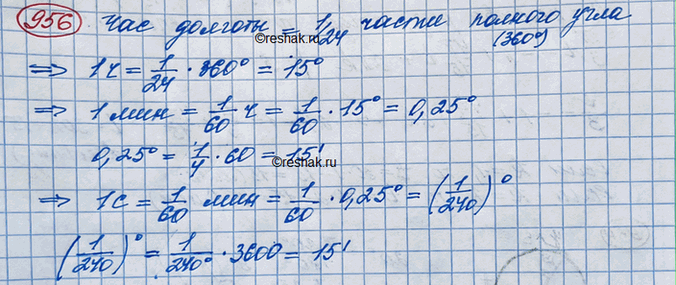 956 Час долготы = 1/24 части полного угла
©reshak.ru (360°)
⇒ 1ч = 1/24 · 360° = 15°
⇒ 1 мин = 1/60 ч = 1/60 · 15° = 0,25°
0,25° = 1/4 · 60 = 15'
©reshak.ru
⇒ 1с = 1/60 мин = 1/60 · 0,25° = (1/240)°
(1/240)° = 1/240° · 3600 = 15'